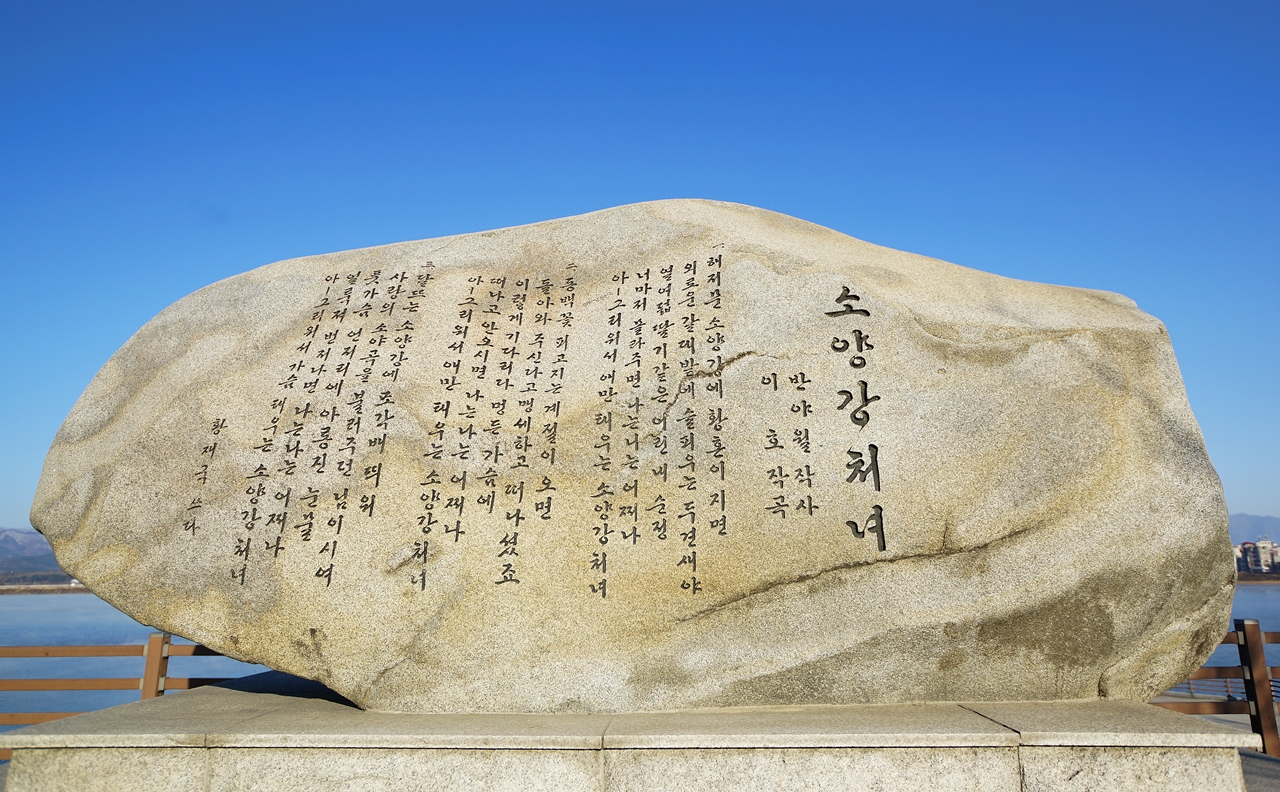 소양강 처녀
반야월 작사
이 호 작곡
一、해저문 소양강에 황혼이 지면
외로운 갈대밭에 슬피우는 두견새야
열여덟 딸기같은 어린 내 순정
너마저 몰라주면 나는나는 어쩌나
아-그리워서 애만 태우는 소양강 처녀
二、동백꽃 피고지는 계절이 오면
돌아와 주신다고 맹세하고 떠나셨죠
이렇게 기다리다 멍든 가슴에
떠나고 안오시면 나는나는 어쩌나
아-그리워서 애만 태우는 소양강 처녀
三、달뜨는 소양강에 조각배 띄워
사랑의 소야곡을 불러주던 님이시여
풋가슴 언저리에 아롱진 눈물
얼룩져 번져나면 나는나는 어쩌나
아-그리워서 가슴 태우는 소양강 처녀
황재국 쓰다